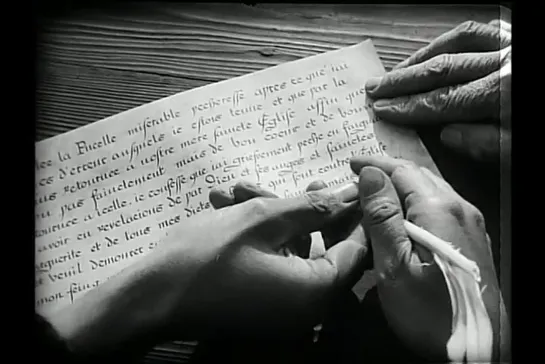 la Pucelle miserable pecheresse apres ce que iai
d'erreur auxquels ie estois tenue et que par la
retournee a nostre mere saincte Eglise affin que
pas fainctement mais de bon coeur et de
a icelle. ie confesse que iai griefvement peche en
avoir eu revelacions de par Dieu et ses anges et sainctes
et de tous mes dicts qui sont contre l'Eglise
veuil demourer
mon seing